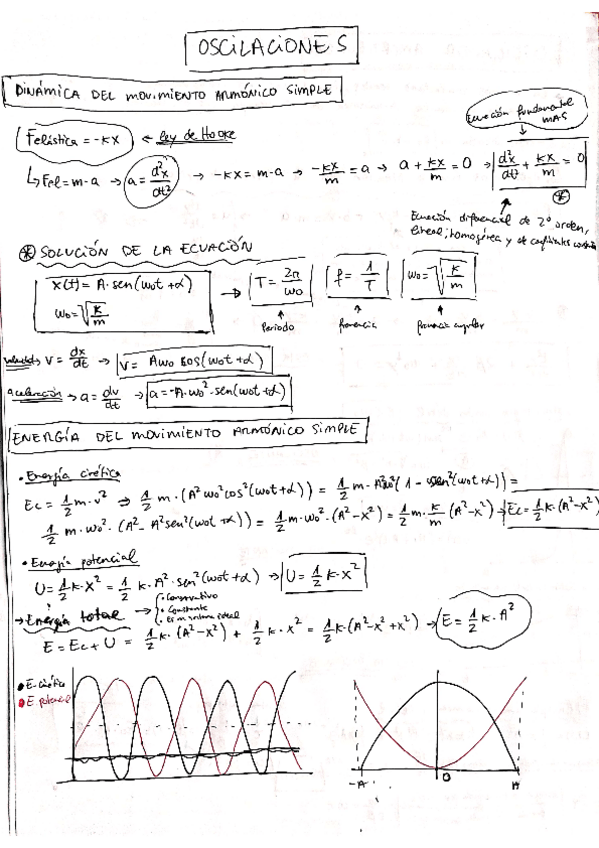 OSCILACIONES
DINÁMICA DEL MOVIMIENTO ARMÓNICO SIMPLE
Ecuación fundamental MAS
Felástica = -kx ← Ley de Hooke
↳ Fel = m·a → a = d²x/dt² → -kx = m·a → -kx/m = a → a + kx/m = 0 → d²x/dt² + kx/m = 0
Ecuación diferencial de 2º orden,
lineal, homogénea y de coeficientes
* SOLUCIÓN DE LA ECUACIÓN
x(t) = A·sen(ωot+α) → T = 2π/ωo f = 1/T ωo = √k/m
ωo = √k/m
Periodo frecuencia frecuencia angular
velocidad → v = dx/dt → v = Aωo cos(ωot+α)
aceleración → a = dv/dt → a = -A·ωo²·sen(ωot+α)
ENERGÍA DEL MOVIMIENTO ARMÓNICO SIMPLE
• Energía cinética
Ec = 1/2 m·v² ⇒ 1/2 m·(A²ωo²cos²(ωot+α)) = 1/2 m·A²ωo²(1 - sen²(ωot+α)) =
1/2 m·ωo²·(A² - A²sen²(ωot+α)) = 1/2 m·ωo²·(A²-x²) = 1/2 m·k/m (A²-x²) → Ec = 1/2 k·(A²-x²)
• Energía potencial
U = 1/2 k·x² = 1/2 k·A²·sen²(ωot+α) → U = 1/2 k·x²
→ Energía total → • Conservativo
• Constante
E = Ec + U = 1/2 k·(A²-x²) + 1/2 k·x² = 1/2 k·(A²-x²+x²) → E = 1/2 k·A²
• E. cinética
• E. potencial
-A 0 A